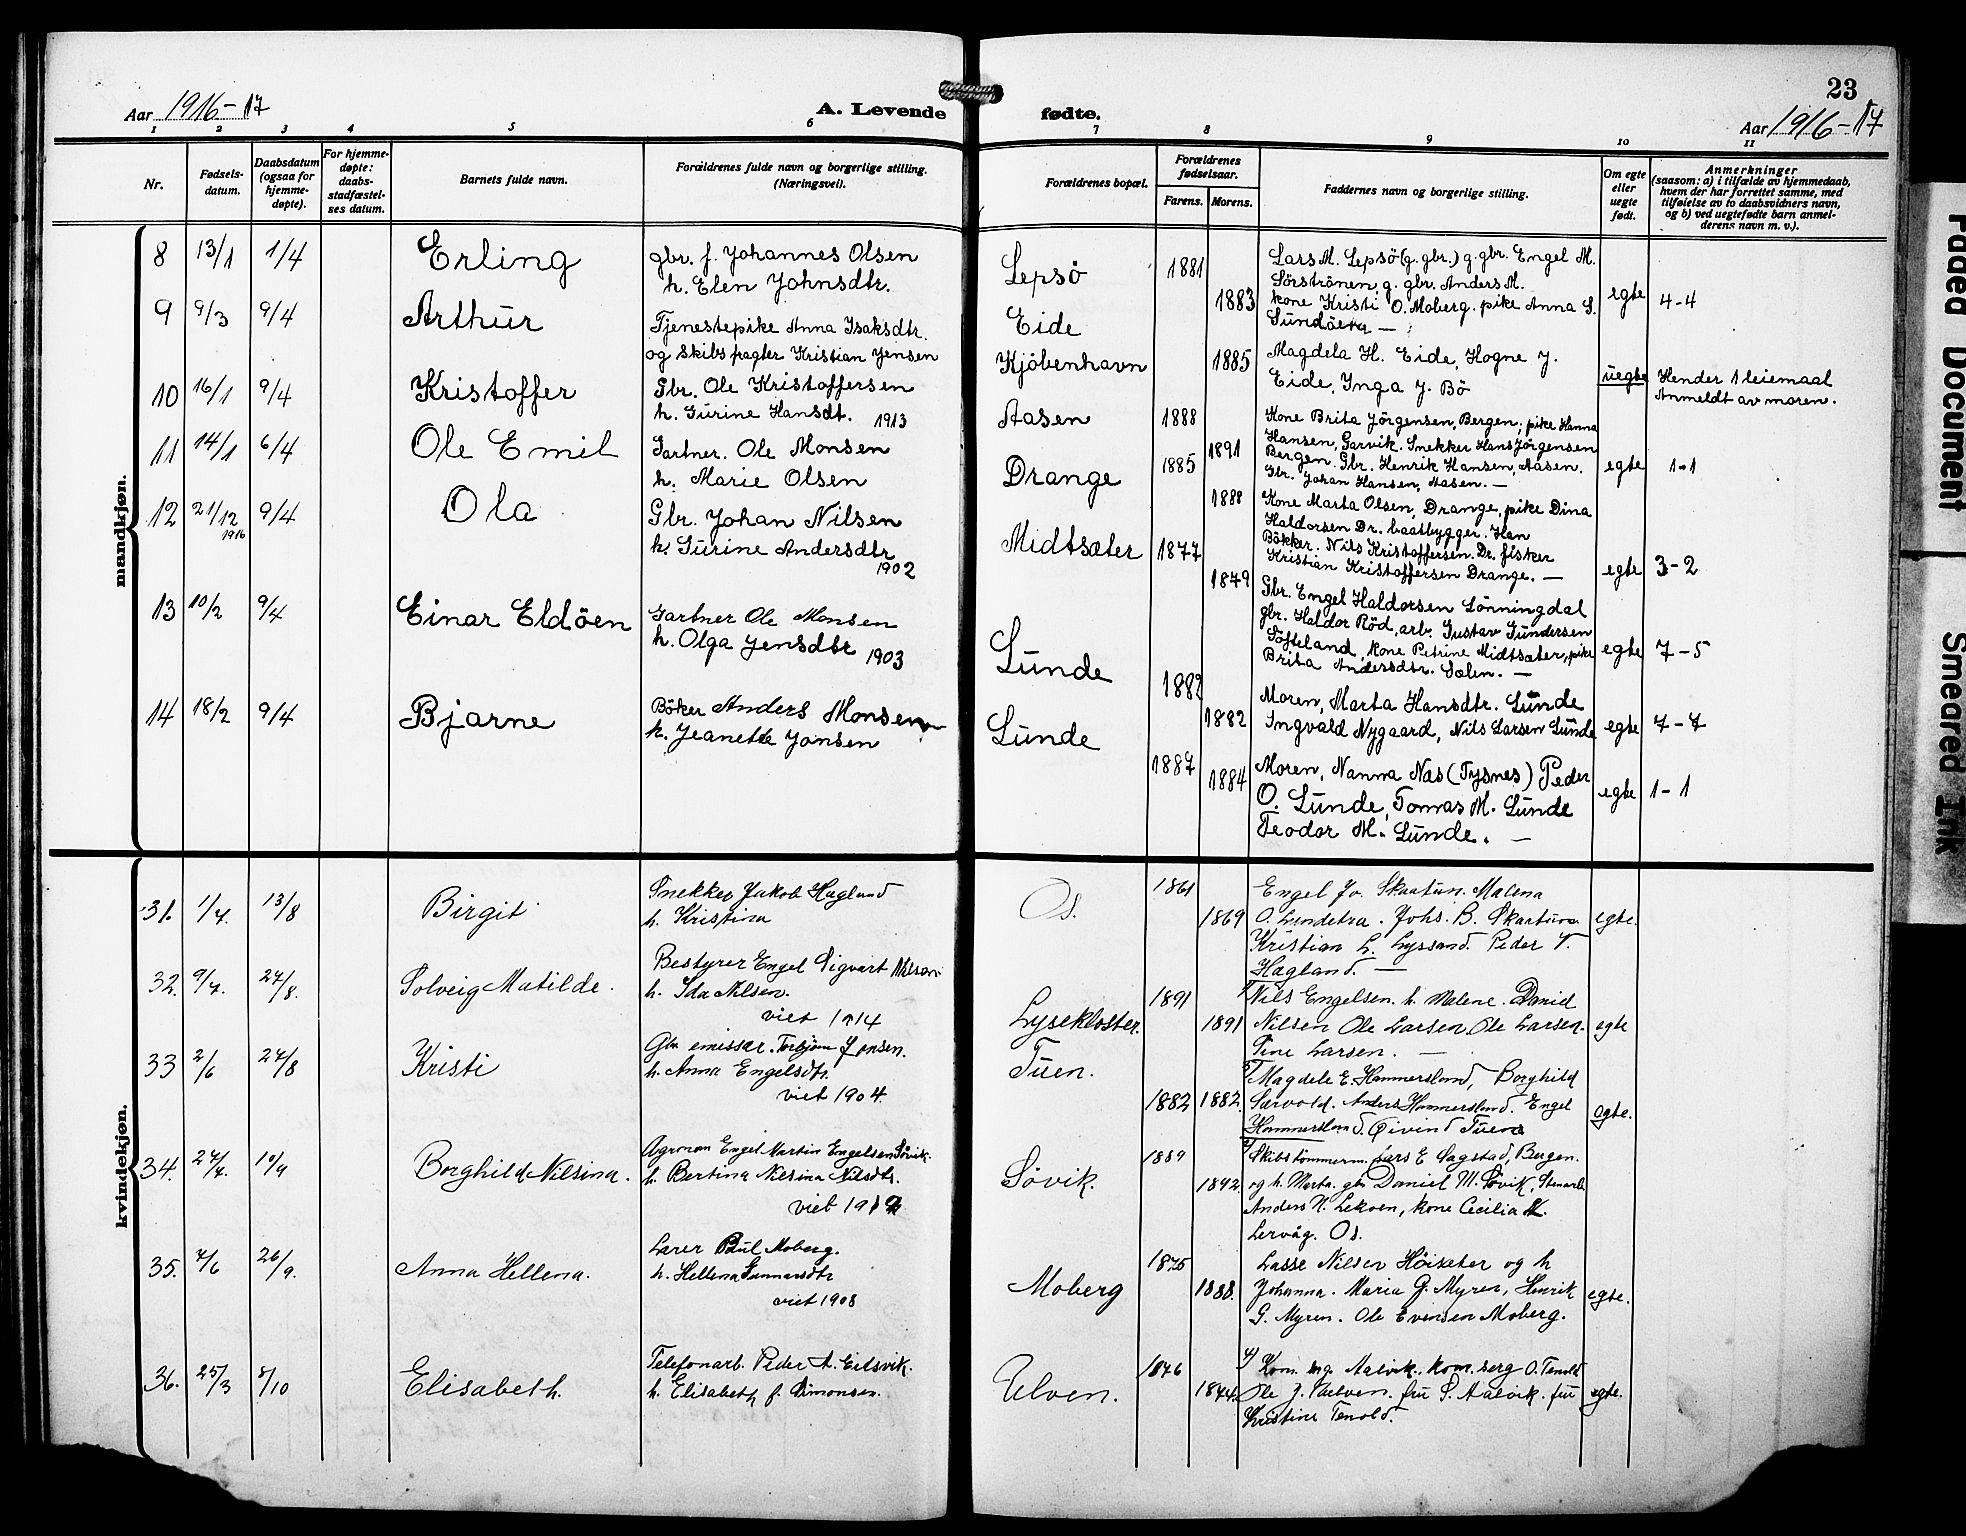 Aar 1916-17
A. Levende
fødte.
23
Aar 1916-17
1 2 3 4 5 6 7 8 9 10 11
Nr.
Fødsels-
datum.
Daabsdatum
(ogsaa for
hjemme-
døpte).
For hjemme-
døpte:
daabs-
stadfæstel-
ses datum.
Barnets fulde navn.
Forældrenes fulde navn og borgerlige stilling.
(Næringsvei).
Forældrenes bopæl.
Forældrenes
fødselsaar.
Farens. Morens.
Faddernes navn og borgerlige stilling.
Om egte
eller
uegte
født.
Anmerkninger
(saasom: a) i tilfælde av hjemmedaab,
hvem der har forrettet samme, med
tilføielse av to daabsvidners navn,
og b) ved uegtefødte barn anmel-
derens navn m. v.).
mandkjøn.
8 13/1 1/4 Erling
gbr. f. Johannes Olsen
h. Elen Johnsdtr.
Lepsö 1881 1883
Lars M. Lepsö (g. gbr.) g. gbr. Engel M.
Sörströnen, g. gbr. Anders M.
kone Kristi O. Moberg. pike Anna S.
Sundöen —
egte 4-4
9 9/3 9/4 Arthur
Tjenestepike Anna Isaksdtr.
og Skibsfragter Kristian Jensen
Eide
Kjöbenhavn 1885
Magdela H. Eide, Hogne J.
Eide, Inga J. Bö
uegte
Hender 1 leiemaal
Anmeldt av moren.
10 16/1 9/4 Kristoffer
Gbr. Ole Kristoffersen
h. Gurine Hansdt. 1913
Aasen 1888 1891
Kone Brita Jörgensen, Bergen, pike Hanna
Hansen, Garvik. Snekker Hans Jörgensen
Bergen. Gbr. Henrik Hansen, Aasen.
Gbr. Johan Hansen, Aasen. —
egte 1-1
11 14/1 6/4 Ole Emil
Gartner. Ole Monsen
h. Marie Olsen
Drange 1885 1888
Kone Marta Olsen, Drange, pike Dina
Haldorsen Dr. baatbygger. Han
Bökker. Nils Kristoffersen. Dr. fisker
Kristian Kristoffersen Drange. —
egte 3-2
12 21/12 1916 9/4 Ola
Gbr. Johan Nilsen
h. Gurine Andersdtr
1902
Midtsæter 1877 1879
Gbr. Engel Haldorsen Lönningdal
gbr. Haldor Röd, arb. Gustav Gundersen
Söfteland, kone Petrine Midtsæter, pike
Brita Andersdtr. Sælen. —
egte 7-5
13 10/2 9/4 Einar Eldöen
Gartner Ole Monsen
h. Olga Jensdtr 1903
Lunde 1882 1882
Moren, Marta Hansdtr. Lunde
Ingvald Nygaard, Nils Larsen Lunde
egte 7-7
14 18/2 9/4 Bjarne
Böker Anders Monsen
h. Jeanette Jonsen
Lunde 1887 1884
Moren, Nanna Nas (Tysnes) Peder
O. Lunde, Tomas M. Lunde
Teodor M. Lunde. —
egte 1-1
kvindekjøn.
31. 1/7. 13/8 Birgit
Snekker Jakob Haglund
h. Kristina
Os. 1861 1869
Engel Jo. Skaatun. Malena
O. Lundetra. Johs. B. Skaatun
Kristian L. Lyssand. Peder T.
Hagland. —
egte.
32. 9/7. 27/8. Solveig Matilde.
Bestyrer Engel Sigvart Nilsen
h. Ida Nilsen.
viet 1914
Lysekloster. 1891 1891
Nils Engelsen. h. Malene. Daniel
Nilsen Ole Larsen. Ole Larsen.
Tine Larsen. —
egte
33 2/6 27/8 Kristi
Gbr emissær. Torbjørn Jonsen.
h. Anna Engelsdtr.
viet 1904.
Tuen. 1882 1882
Magdele E. Hammersland, Borghild
Særvold. Anders Hammersland. Engel
Hammersland. Øivind Tuen
egte.
34. 27/7. 10/9 Borghild Nilsina.
Agronom Engel Martin Engelsen Søvik.
h. Bertina Nilsina Nilsdtr.
viet 1919
Søvik. 1889 1892
Skibstømmerm. Lars E Sagstad, Bergen.
og h. Marta. gbr Daniel M. Søvik, Stenarb.
Anders N. Lekven, kone Cecilia K.
Lervåg. Os.
35. 7/6 26/9. Anna Hellena.
Lærer Bul Moberg.
h. Hellena Gunnarsdtr
viet 1908
Moberg 1875 1888.
Lasse Nilsen Höisæter og h
Johanna. Maria G. Myren, Henrik
G. Myren. Ole Evensen Moberg.
egte.
36. 25/3 8/10 Elisabeth.
Telefonarb. Peder A. Eilsvik.
h. Elisabeth f. Simonsen.
Ulven. 1876 1877.
Kom. Ing. Aalvik. kom. serg O. Tenold
Ole J. Ulven. fru S. Aalvik. fru
Kristine Tenold.
egte.
Faded Document
Smeared Ink